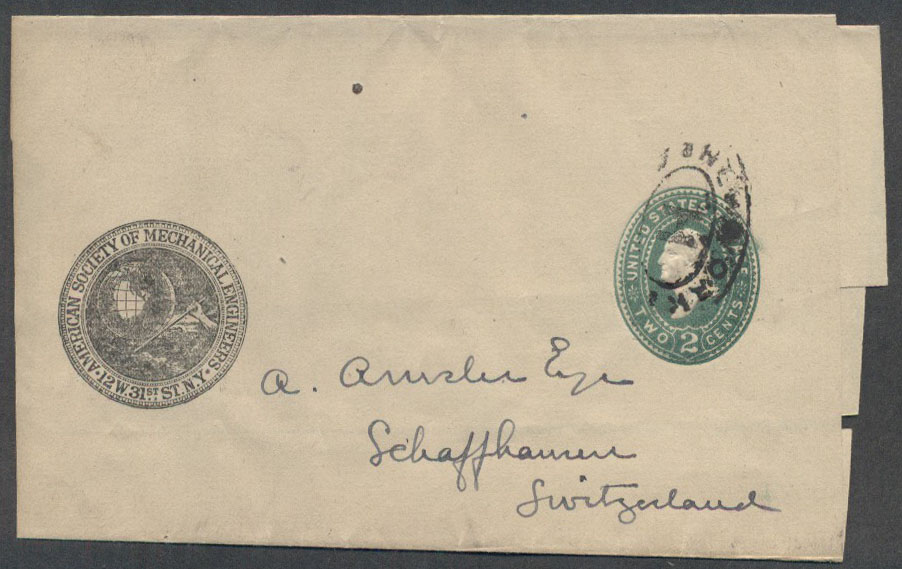 AMERICAN SOCIETY OF MECHANICAL ENGINEERS
12 W. 31ST ST. N.Y.
UNITED STATES
TWO 2 CENTS
NEW YORK
A. Amsler Esqr
Schaffhausen
Switzerland